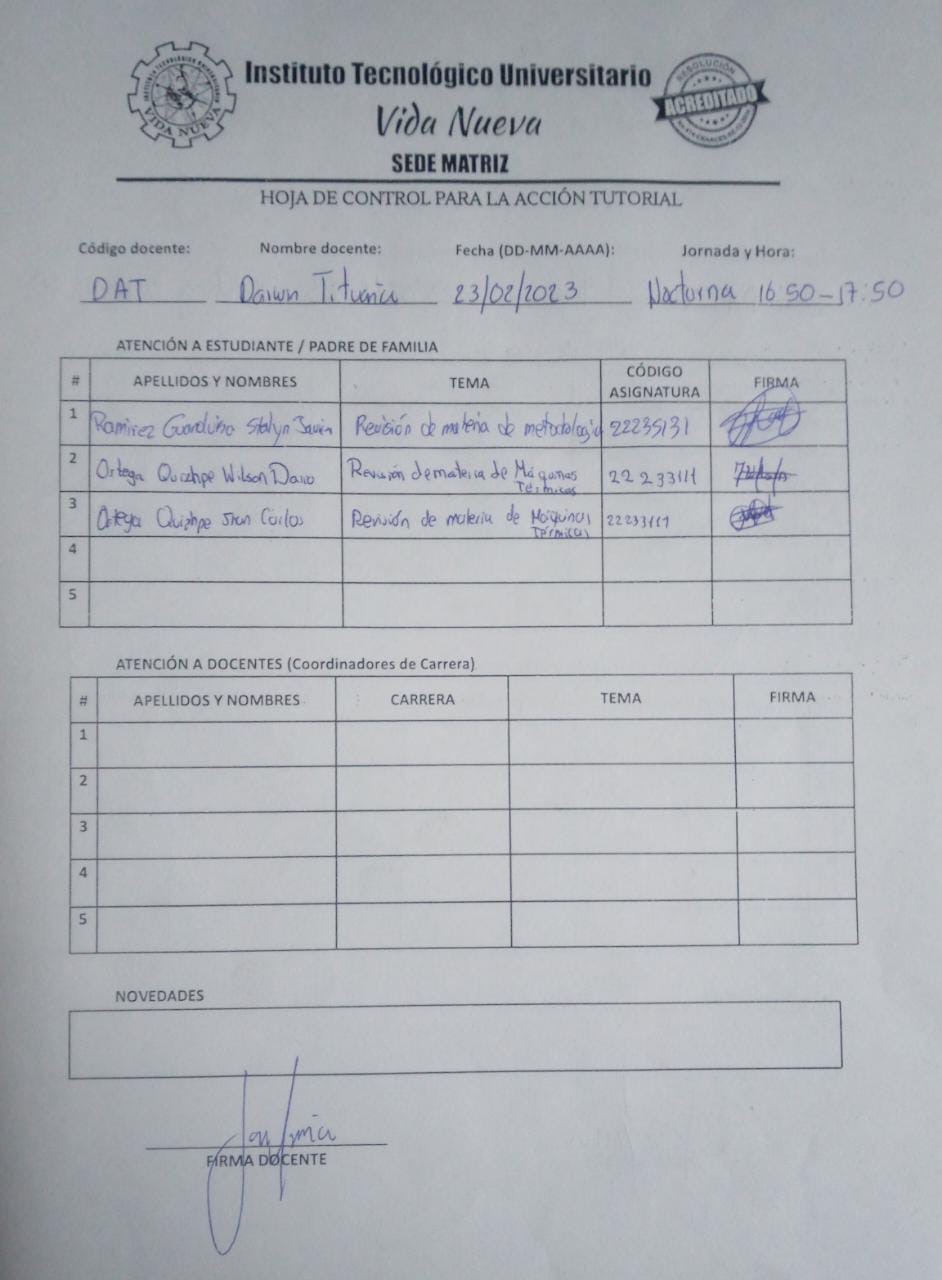 Instituto Tecnológico Universitario
Vida Nueva
SEDE MATRIZ
VIDA NUEVA
RESOLUCIÓN
ACREDITADO
HOJA DE CONTROL PARA LA ACCIÓN TUTORIAL
Código docente: Nombre docente: Fecha (DD-MM-AAAA): Jornada y Hora:
DAT 23/02/2023 Nocturna 16 50-17:50
ATENCIÓN A ESTUDIANTE / PADRE DE FAMILIA
# APELLIDOS Y NOMBRES TEMA CÓDIGO ASIGNATURA FIRMA
1 Ramirez Stalyn Javier Revisión de materia de metodologia 22235131
2 Ortega Quizhpe Wilson Dario Revisión de materia de Máquinas Térmicas 22 233111
3 Ortega Quizhpe Jean Carlos Revisión de materia de Máquinas Térmicas 22233111
4
5
ATENCIÓN A DOCENTES (Coordinadores de Carrera)
# APELLIDOS Y NOMBRES CARRERA TEMA FIRMA
1
2
3
4
5
NOVEDADES
FIRMA DOCENTE